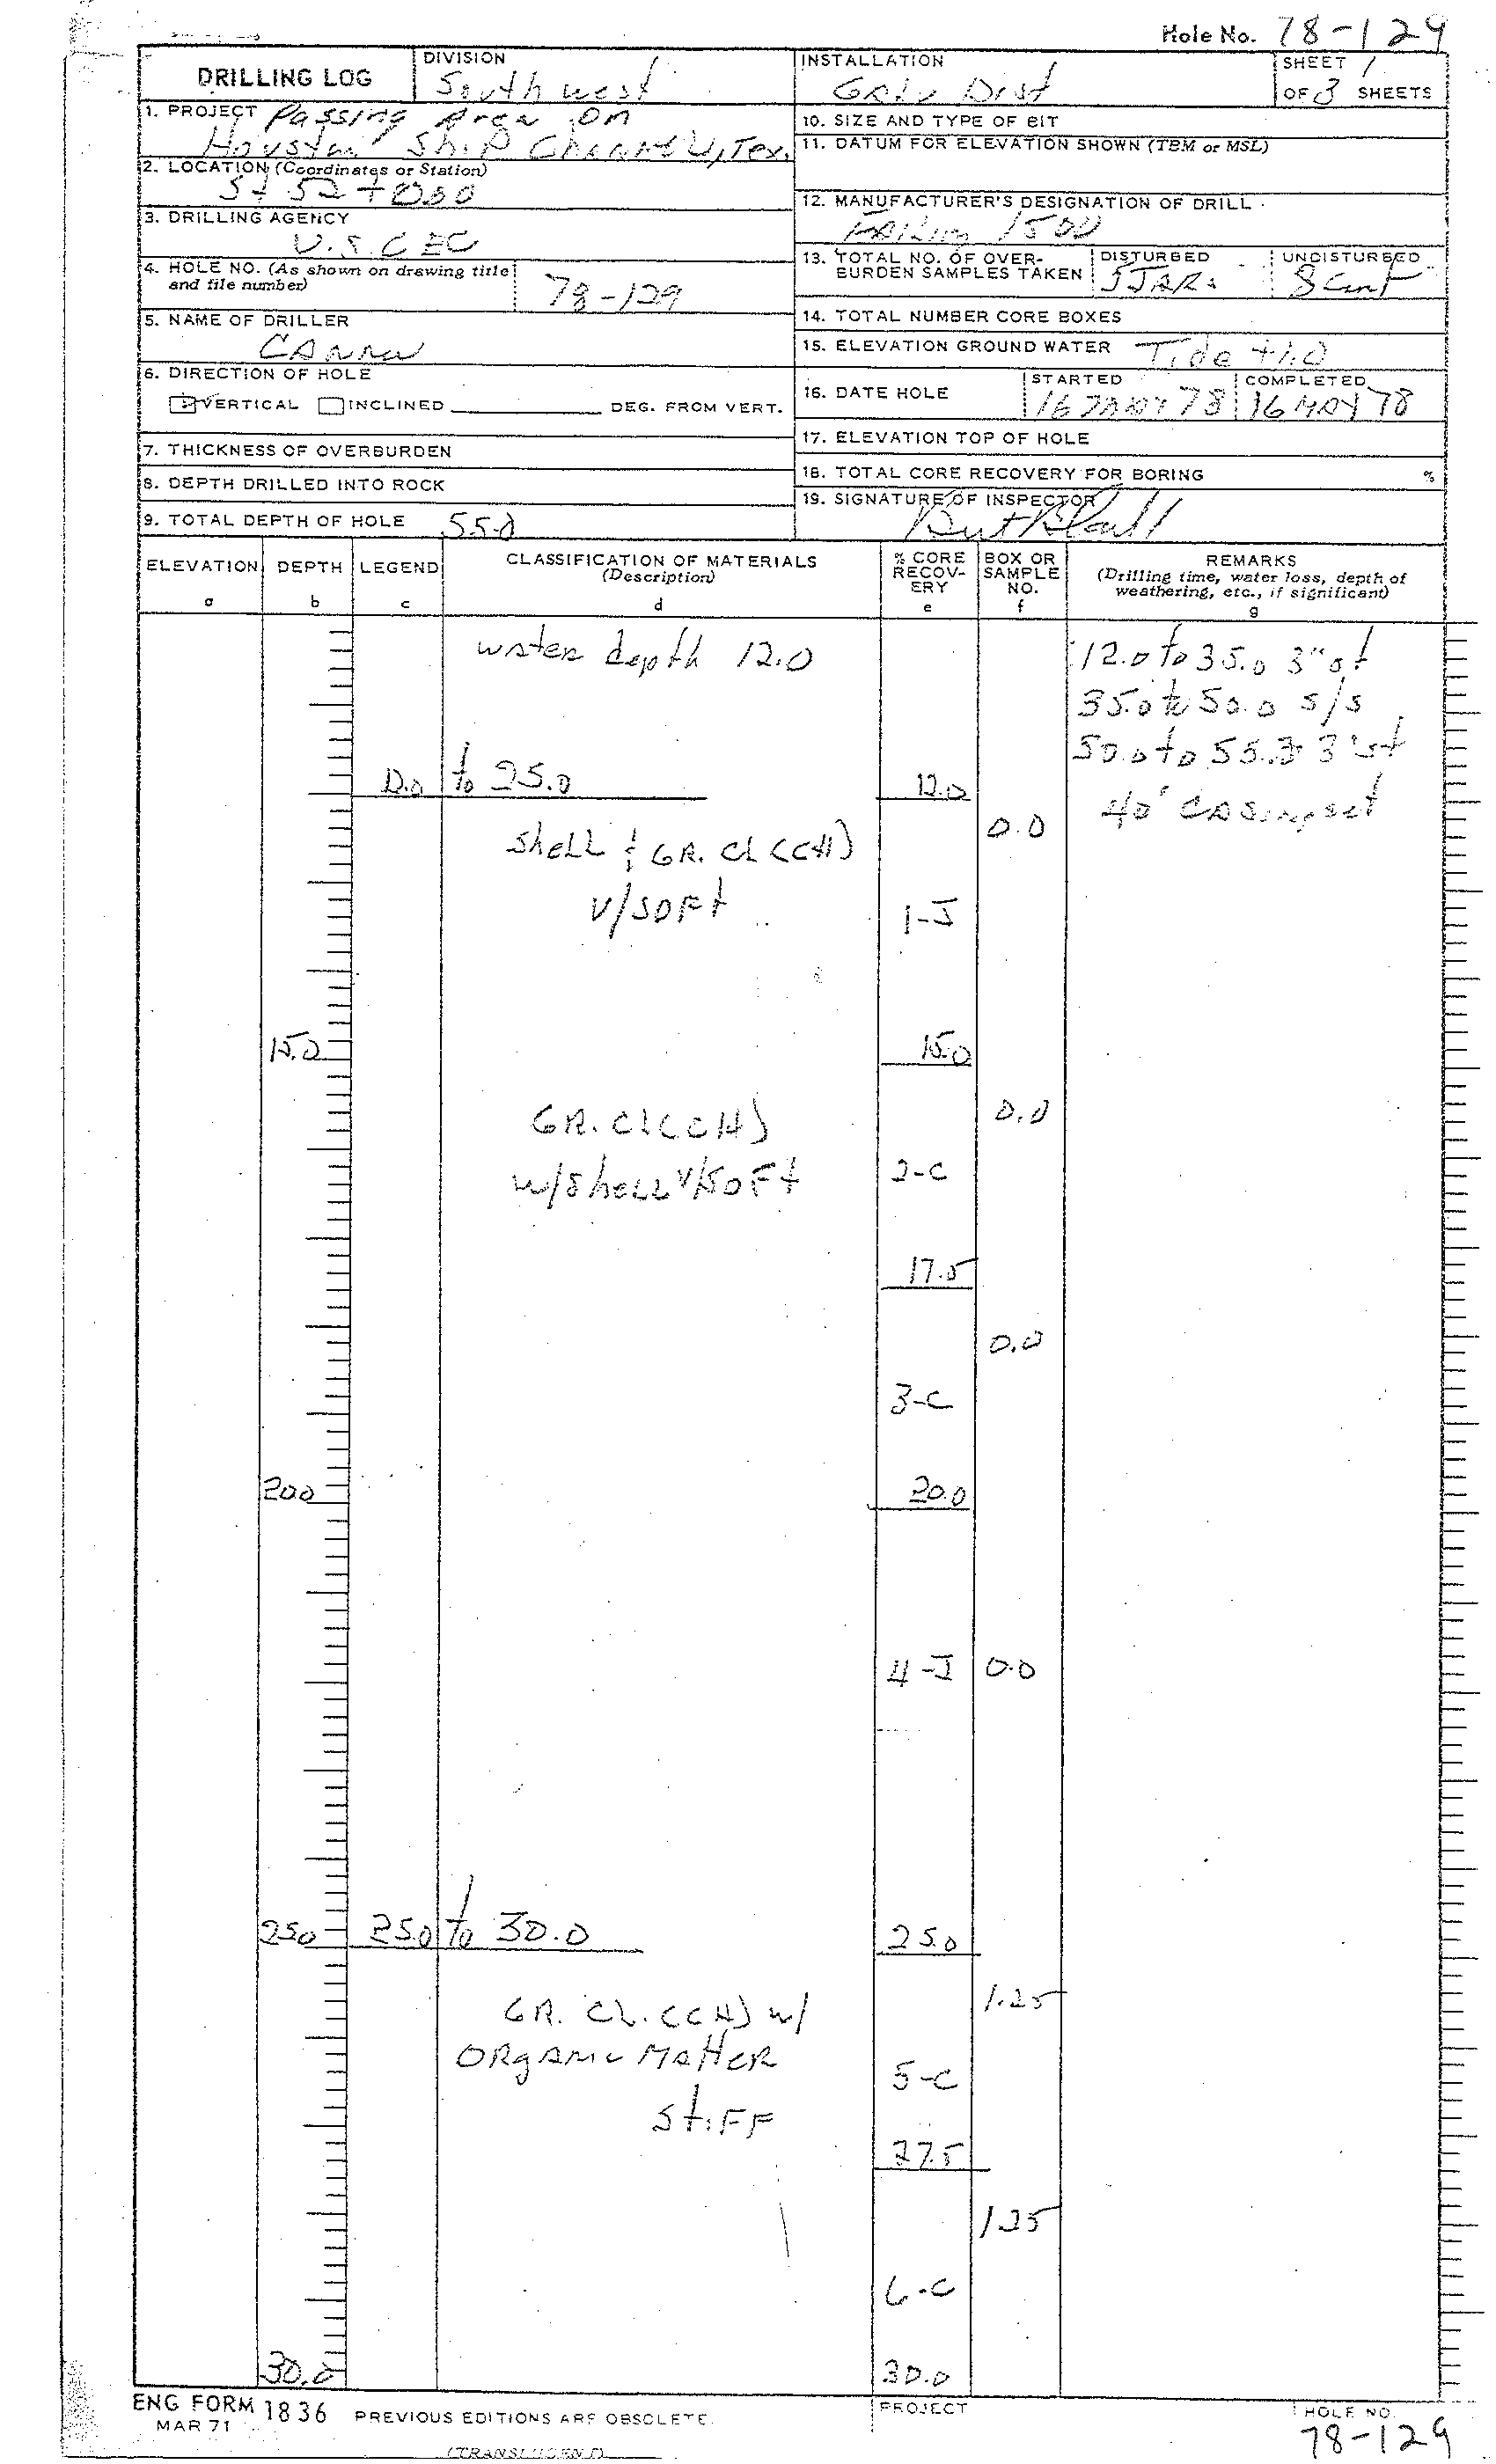 Hole No. 78-129
DRILLING LOG
DIVISION
Southwest
INSTALLATION
Galv Dist
SHEET 1
OF 3 SHEETS
1. PROJECT Passing Area on
Houston Ship Channel, Tex.
10. SIZE AND TYPE OF BIT
11. DATUM FOR ELEVATION SHOWN (TBM or MSL)
2. LOCATION (Coordinates or Station)
St 52+000
12. MANUFACTURER'S DESIGNATION OF DRILL
Failing 1500
3. DRILLING AGENCY
U.S.C EC
13. TOTAL NO. OF OVER-
BURDEN SAMPLES TAKEN
DISTURBED
5 JARs
UNDISTURBED
8 Cant
4. HOLE NO. (As shown on drawing title
and file number)
78-129
14. TOTAL NUMBER CORE BOXES
5. NAME OF DRILLER
15. ELEVATION GROUND WATER Tide +1.0
6. DIRECTION OF HOLE
VERTICAL INCLINED DEG. FROM VERT.
16. DATE HOLE
STARTED
16 MAY 78
COMPLETED
16 MAY 78
7. THICKNESS OF OVERBURDEN
17. ELEVATION TOP OF HOLE
8. DEPTH DRILLED INTO ROCK
18. TOTAL CORE RECOVERY FOR BORING %
9. TOTAL DEPTH OF HOLE 55.0
19. SIGNATURE OF INSPECTOR
ELEVATION DEPTH LEGEND CLASSIFICATION OF MATERIALS
(Description)
% CORE
RECOV-
ERY
BOX OR
SAMPLE
NO.
REMARKS
(Drilling time, water loss, depth of
weathering, etc., if significant)
a b c d e f g
water depth 12.0
12.0 to 35.0 3" st
35.0 to 50.0 s/s
50.0 to 55.0 3" st
12.0 to 25.0
12.0
40' CASing set
0.0
Shell & GR. CL (CH)
V/SOFt
1-J
15.0
15.0
0.0
GR. Cl (CH)
w/shell V/SOFt
2-C
17.5
0.0
3-C
20.0
20.0
4-J 0.0
25.0 25.0 to 30.0
25.0
1.25
GR. CL. (CH) w/
ORgANIC MAtteR
StiFF
5-C
27.5
1.25
6-C
30.0
30.0
ENG FORM 1836
MAR 71
PREVIOUS EDITIONS ARE OBSOLETE.
(TRANSLUCENT)
PROJECT
HOLE NO.
78-129